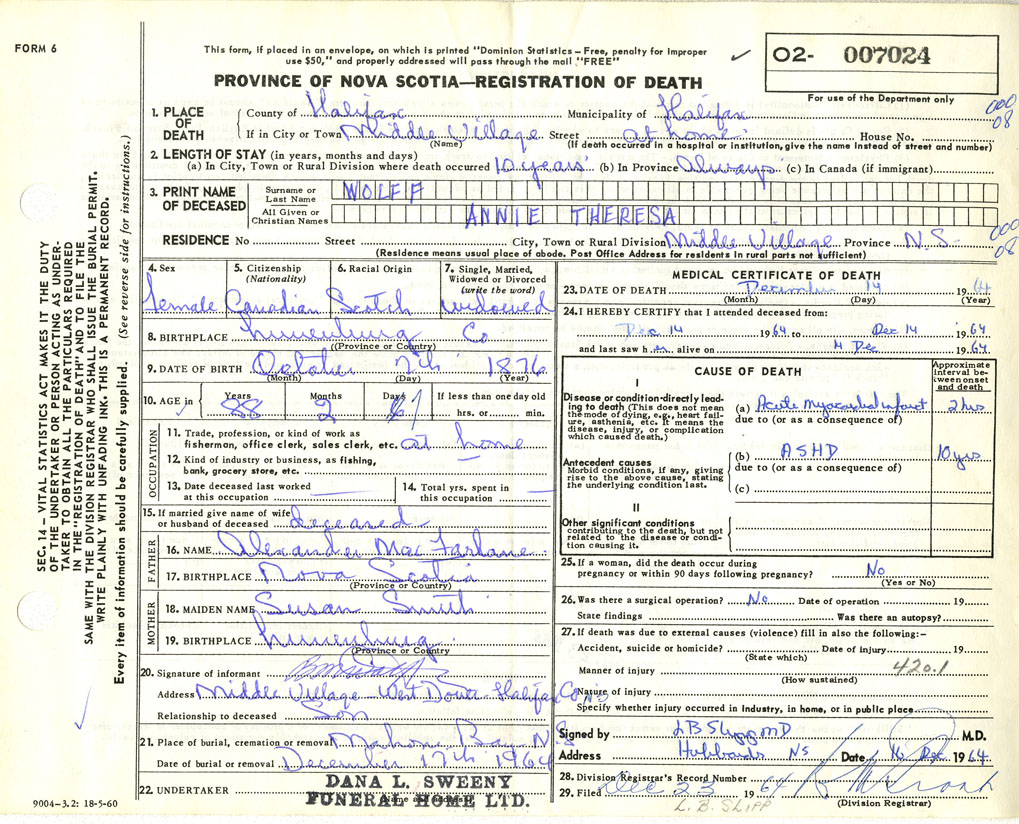 FORM 6
This form, if placed in an envelope, on which is printed "Dominion Statistics – Free, penalty for improper
use $50," and properly addressed will pass through the mail "FREE"
O2- 007024
For use of the Department only
PROVINCE OF NOVA SCOTIA—REGISTRATION OF DEATH
000
08
1. PLACE OF DEATH County of Halifax Municipality of Halifax
If in City or Town Middle Village Street at home House No.
(Name) (If death occurred in a hospital or institution, give the name instead of street and number)
2. LENGTH OF STAY (in years, months and days)
(a) In City, Town or Rural Division where death occurred 10 years (b) In Province Always (c) In Canada (if immigrant)
3. PRINT NAME OF DECEASED Surname or Last Name WOLFF
All Given or Christian Names ANNIE THERESA
000
08
RESIDENCE No Street City, Town or Rural Division Middle Village Province N.S.
(Residence means usual place of abode. Post Office Address for residents in rural parts not sufficient)
4. Sex 5. Citizenship (Nationality) 6. Racial Origin 7. Single, Married, Widowed or Divorced (write the word)
female Canadian Scotch widowed
8. BIRTHPLACE Lunenburg Co
(Province or Country)
9. DATE OF BIRTH October 7th 1876
(Month) (Day) (Year)
10. AGE in Years Months Days If less than one day old
88 2 7 hrs. or min.
OCCUPATION
11. Trade, profession, or kind of work as
fisherman, office clerk, sales clerk, etc. at home
12. Kind of industry or business, as fishing,
bank, grocery store, etc.
13. Date deceased last worked at this occupation
14. Total yrs. spent in this occupation
15. If married give name of wife
or husband of deceased deceased
FATHER
16. NAME Alexander MacFarlane
17. BIRTHPLACE Nova Scotia
(Province or Country)
MOTHER
18. MAIDEN NAME Susan Smith
19. BIRTHPLACE Lunenburg
(Province or Country)
20. Signature of informant
Address Middle Village West Dover Halifax Co N.S
Relationship to deceased Son
21. Place of burial, cremation or removal Mahone Bay N.S
Date of burial or removal December 17th 1964
22. UNDERTAKER DANA L. SWEENY
FUNERAL HOME LTD.
(Name and address)
9004–3.2: 18-5-60
MEDICAL CERTIFICATE OF DEATH
23. DATE OF DEATH December 14 1964
(Month) (Day) (Year)
24. I HEREBY CERTIFY that I attended deceased from:
Dec 14 1964 to Dec 14 1964
and last saw her alive on 14 Dec 1964
CAUSE OF DEATH
Approximate interval between onset and death
I
Disease or condition directly leading to death (This does not mean the mode of dying, e.g., heart failure, asthenia, etc. It means the disease, injury, or complication which caused death.)
(a) Acute Myocardial infarct 2 hrs
due to (or as a consequence of)
Antecedent causes
Morbid conditions, if any, giving rise to the above cause, stating the underlying condition last.
(b) ASHD 10 yrs
due to (or as a consequence of)
(c)
II
Other significant conditions
contributing to the death, but not related to the disease or condition causing it.
25. If a woman, did the death occur during
pregnancy or within 90 days following pregnancy? No
(Yes or No)
26. Was there a surgical operation? No Date of operation 19
State findings Was there an autopsy?
27. If death was due to external causes (violence) fill in also the following:–
Accident, suicide or homicide? Date of injury 19
(State which)
Manner of injury 420.1
(How sustained)
Nature of injury
Specify whether injury occurred in industry, in home, or in public place
Signed by LB Slipp MD M.D.
Address Hubbards NS Date 16 Dec 1964
28. Division Registrar's Record Number
29. Filed Dec 23 1964
(Division Registrar)
L.B. SLIPP
SEC. 14 – VITAL STATISTICS ACT MAKES IT THE DUTY
OF THE UNDERTAKER OR PERSON ACTING AS UNDER-
TAKER TO OBTAIN ALL THE PARTICULARS REQUIRED
IN THE "REGISTRATION OF DEATH" AND TO FILE THE
SAME WITH THE DIVISION REGISTRAR WHO SHALL ISSUE THE BURIAL PERMIT.
WRITE PLAINLY WITH UNFADING INK. THIS IS A PERMANENT RECORD.
Every item of information should be carefully supplied. (See reverse side for instructions.)